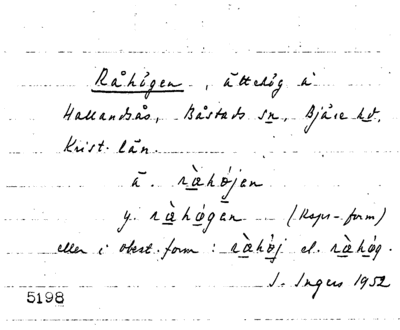 Råhögen, ättehög å
Hallandsås, Båstads sn, Bjäre hd,
Krist. län.
ä. ràhǿjen
y. ràhǿgen (Rspr-form)
eller i obest. form: ràhǿj el. ràhǿg.
I. Ingers 1952
5198